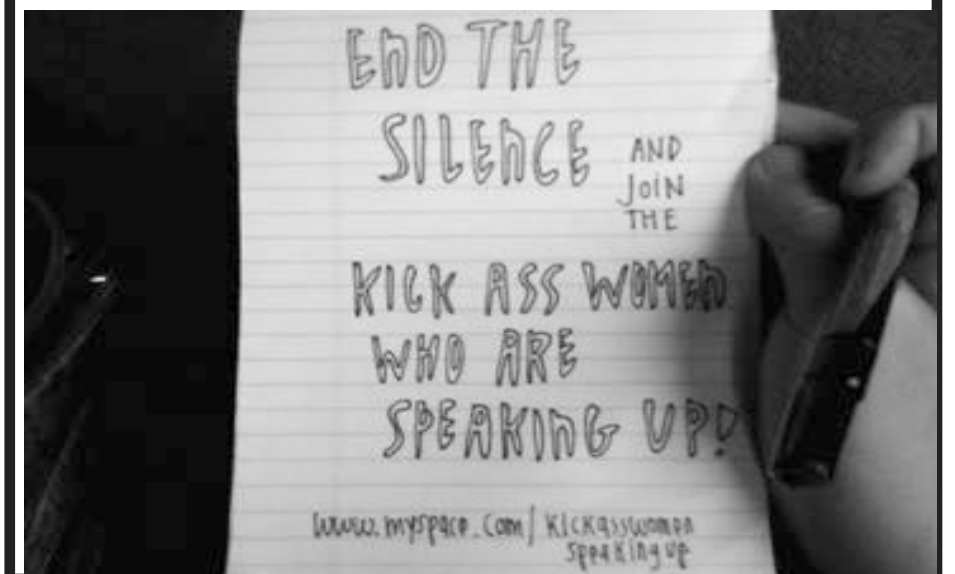 END THE
SILENCE
AND
JOIN
THE
KICK ASS WOMEN
WHO ARE
SPEAKING UP!
www.myspace.com/kickasswomen
speakingup